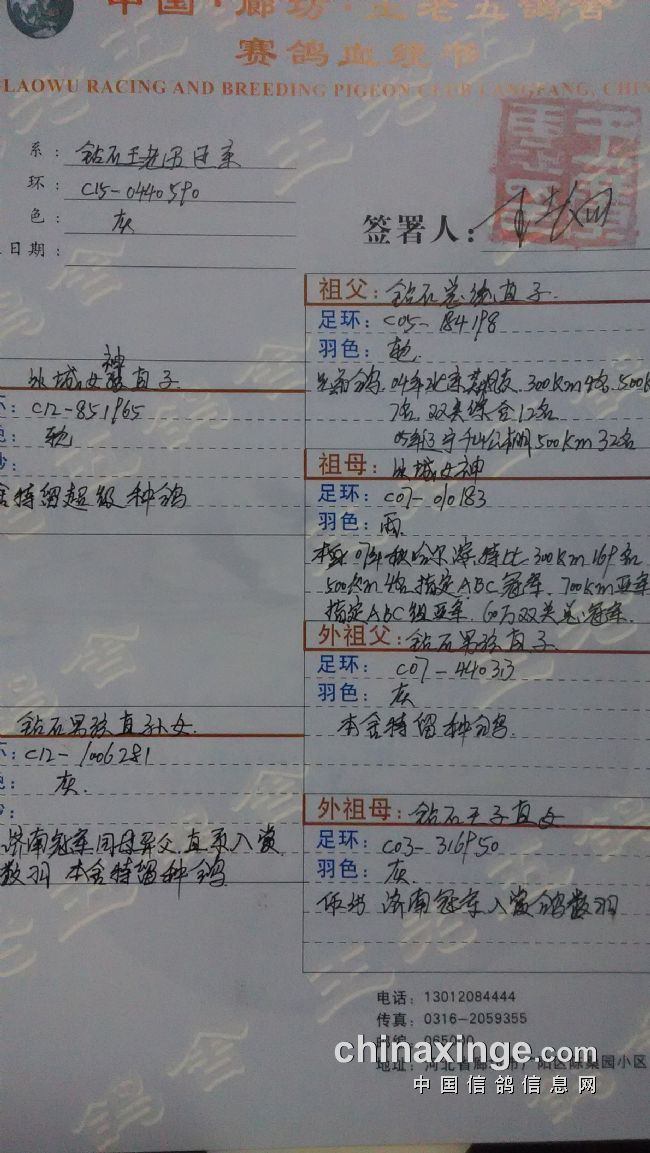 中国·廊坊·王老五鸽舍
赛鸽血统书
LAOWU RACING AND BREEDING PIGEON CLUB LANGFANG, CHIN
系: 钻石王老五近亲
环: C15-0440590
色: 灰
日期:
签署人:
祖父: 钻石总统直子
足环: C05-184198
羽色:
300km 4名. 500K
7名. 双关综合12名
500km 32名
祖母: 冰城女神
足环: C07-010183
羽色: 雨
07年秋哈尔滨特比300km 169名
500km 4名 指定ABC冠军. 700km亚军
指定ABC组亚军. 60万双关总冠军.
外祖父: 钻石男孩直子
足环: C07-440313
羽色: 灰
本舍特留种鸽
外祖母: 钻石王子直女
足环: C03-316950
羽色: 灰
作出济南冠军入赏鸽数羽
冰城女神直子
环: C12-851965
舍特留超级种鸽
钻石男孩直孙女
环: C12-1006281
灰.
济南冠军同母异父, 直系入赏
数羽 本舍特留种鸽
电话: 13012084444
传真: 0316-2059355
邮编: 065000
地址: 河北省廊坊市广阳区陈桑园小区
chinaxinge.com
中国信鸽信息网